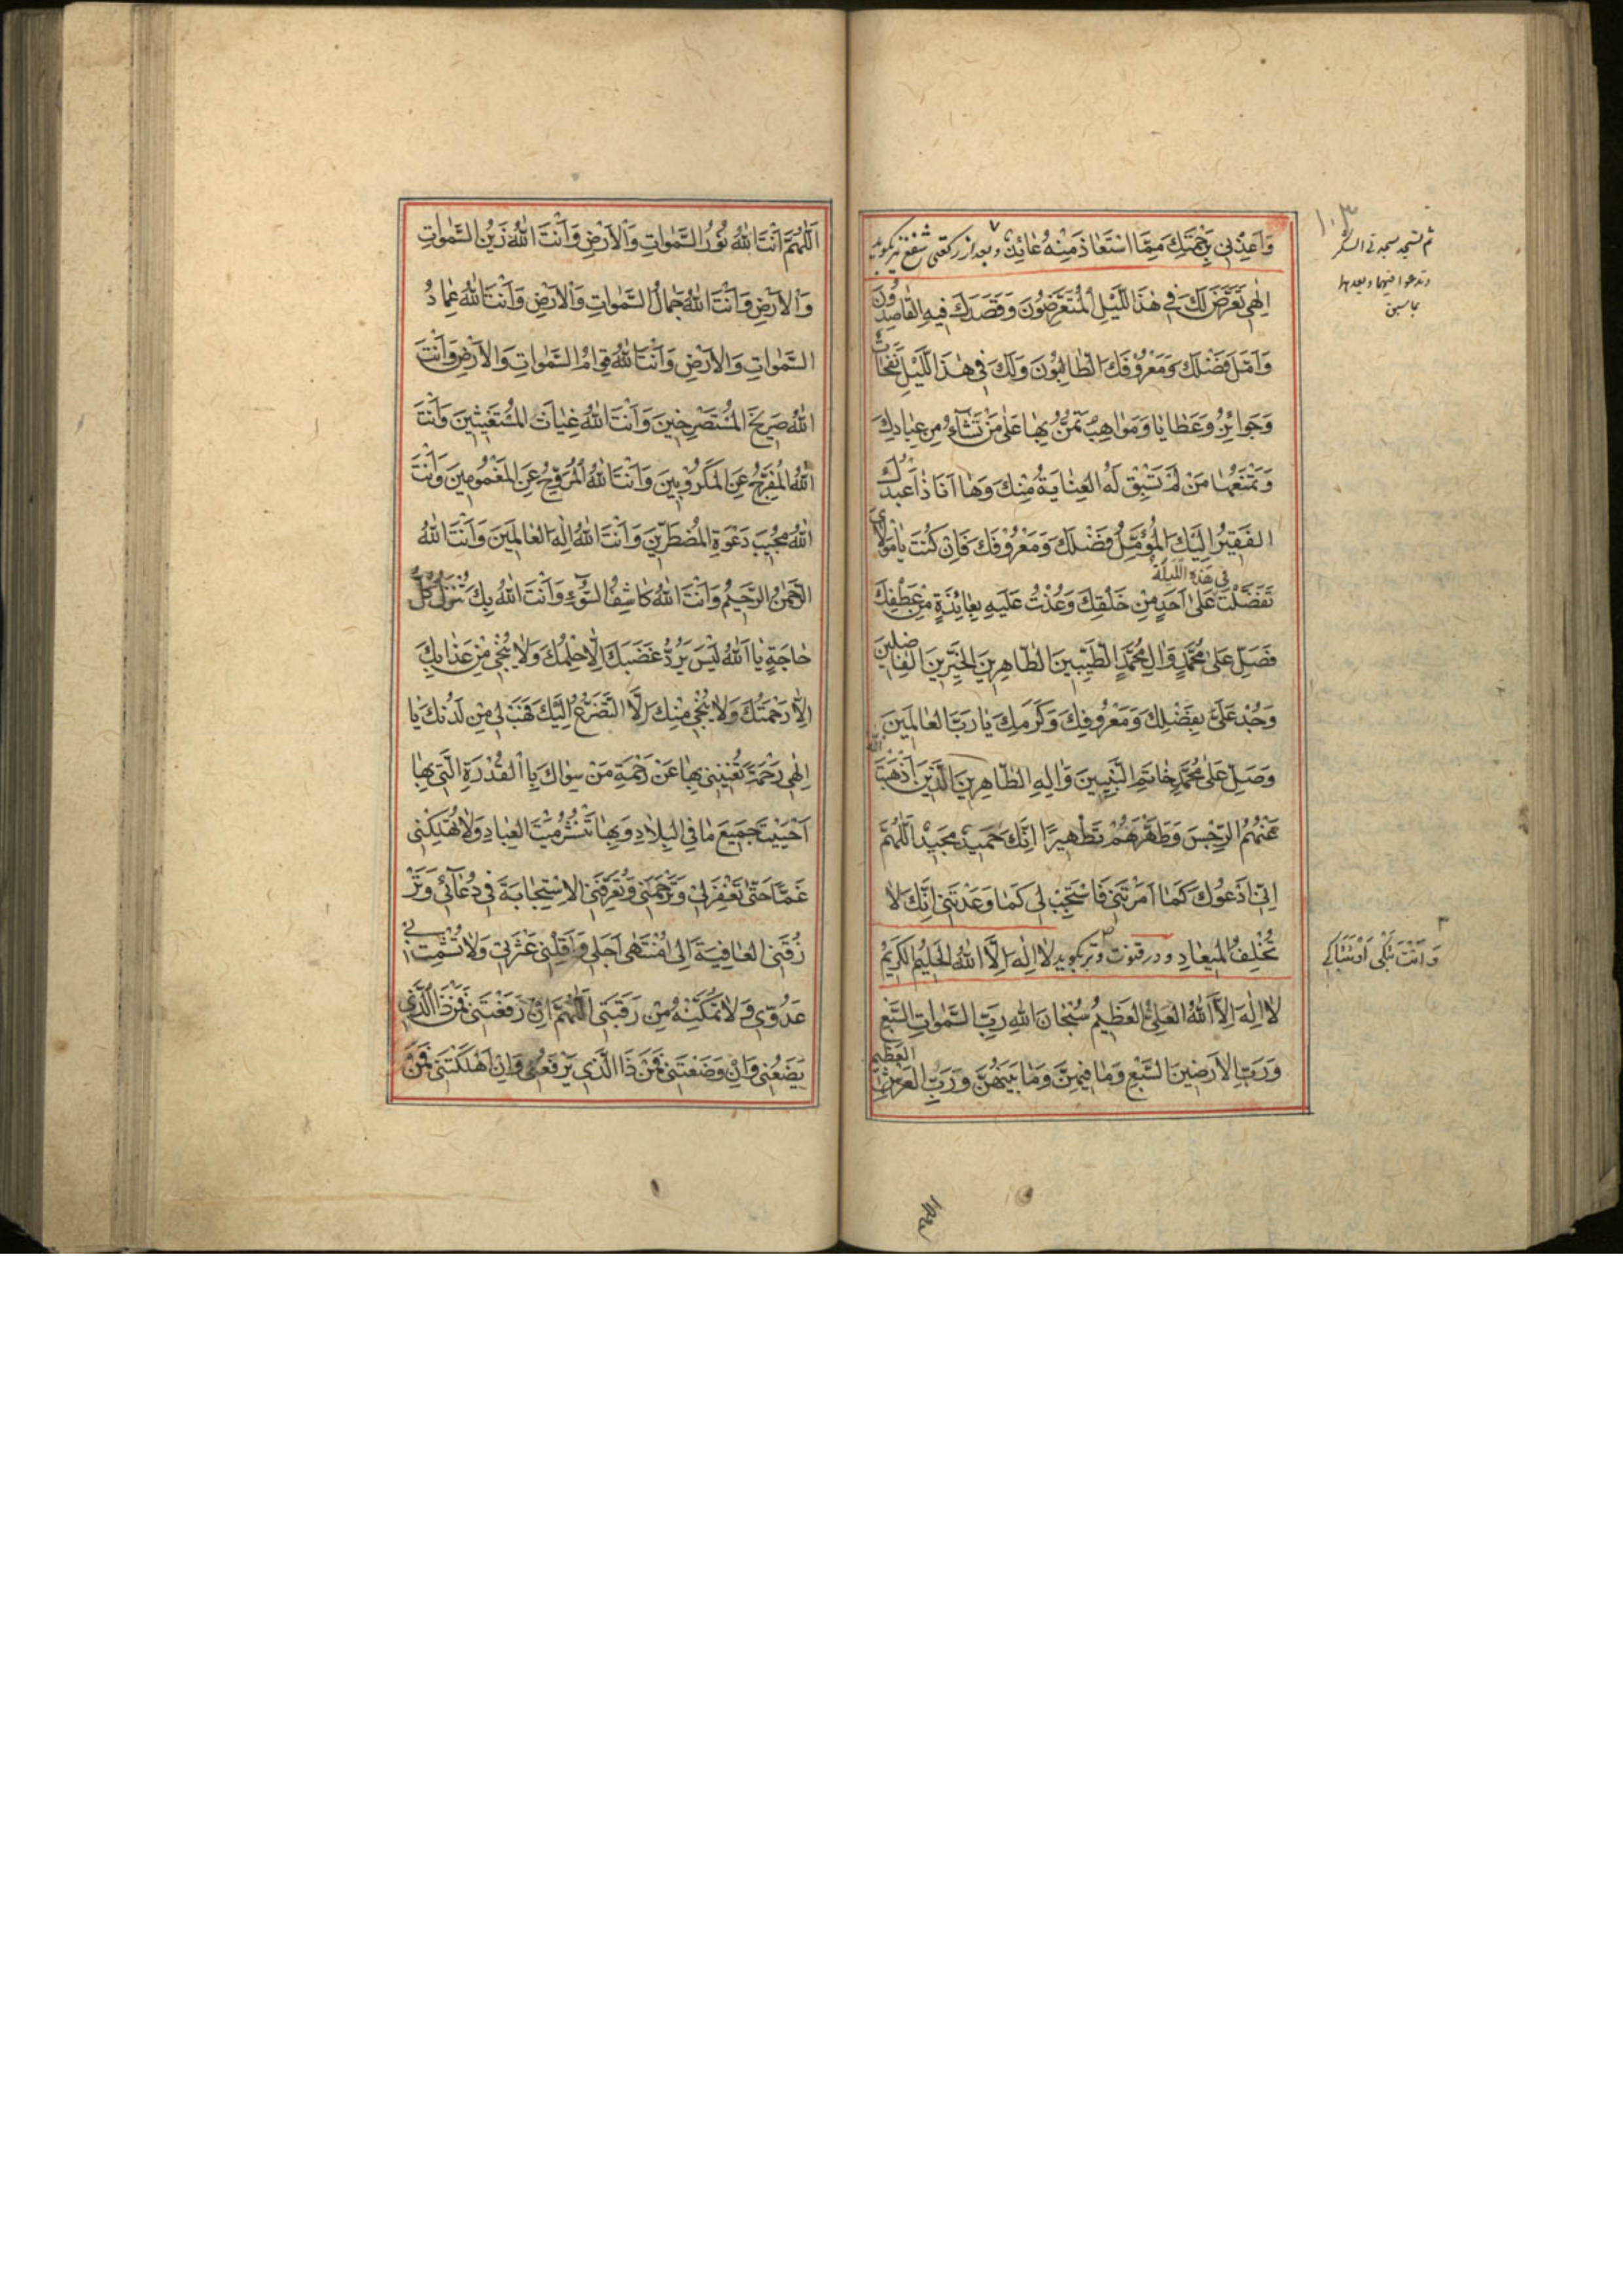 وَاَعِذْنِي بِرَحْمَتِكَ مِمَّا اسْتَعَاذَ مِنْهُ عَائِذٌ وبعد از ركعتى شفع نيز بگويد
اِلٰهِي تَعَرَّضَ لَكَ فِي هٰذَا اللَّيْلِ الْمُتَعَرِّضُونَ وَقَصَدَكَ فِيهِ الْقَاصِدُونَ
وَاَمَّلَ فَضْلَكَ وَمَعْرُوفَكَ الطَّالِبُونَ وَلَكَ فِي هٰذَا اللَّيْلِ نَفَحَاتٌ
وَجَوَائِزُ وَعَطَايَا وَمَوَاهِبُ تَمُنُّ بِهَا عَلٰى مَنْ تَشَآءُ مِنْ عِبَادِكَ
وَتَمْنَعُهَا مَنْ لَمْ تَسْبِقْ لَهُ الْعِنَايَةُ مِنْكَ وَهَا اَنَا ذَا عَبْدُكَ
الْفَقِيرُ اِلَيْكَ الْمُؤَمِّلُ فَضْلَكَ وَمَعْرُوفَكَ فَاِنْ كُنْتَ يَا مَوْلَايَ
تَفَضَّلْتَ فِي هٰذِهِ اللَّيْلَةِ عَلٰى اَحَدٍ مِنْ خَلْقِكَ وَعُدْتَ عَلَيْهِ بِعَائِدَةٍ مِنْ عَطْفِكَ
فَصَلِّ عَلٰى مُحَمَّدٍ وَاٰلِ مُحَمَّدٍ الطَّيِّبِينَ الطَّاهِرِينَ الْخَيِّرِينَ الْفَاضِلِينَ
وَجُدْ عَلَيَّ بِفَضْلِكَ وَمَعْرُوفِكَ وَكَرَمِكَ يَا رَبَّ الْعَالَمِينَ
وَصَلِّ عَلٰى مُحَمَّدٍ خَاتَمِ النَّبِيِّينَ وَاٰلِهِ الطَّاهِرِينَ الَّذِينَ اَذْهَبَ اللّٰهُ
عَنْهُمُ الرِّجْسَ وَطَهَّرَهُمْ تَطْهِيرًا اِنَّكَ حَمِيدٌ مَجِيدٌ اَللّٰهُمَّ
اِنِّي اَدْعُوكَ كَمَا اَمَرْتَنِي فَاسْتَجِبْ لِي كَمَا وَعَدْتَنِي اِنَّكَ لَا
تُخْلِفُ الْمِيعَادِ ودر قنوت وتر بگويد لَا اِلٰهَ اِلَّا اللّٰهُ الْحَلِيمُ الْكَرِيمُ
لَا اِلٰهَ اِلَّا اللّٰهُ الْعَلِيُّ الْعَظِيمُ سُبْحَانَ اللّٰهِ رَبِّ السَّمٰوَاتِ السَّبْعِ
وَرَبِّ الْاَرَضِينَ السَّبْعِ وَمَا فِيهِنَّ وَمَا بَيْنَهُنَّ وَرَبِّ الْعَرْشِ الْعَظِيمِ
١٠٣
اَللّٰهُمَّ اَنْتَ اللّٰهُ نُورُ السَّمٰوَاتِ وَالْاَرْضِ وَاَنْتَ اللّٰهُ زَيْنُ السَّمٰوَاتِ
وَالْاَرْضِ وَاَنْتَ اللّٰهُ جَمَالُ السَّمٰوَاتِ وَالْاَرْضِ وَاَنْتَ اللّٰهُ عِمَادُ
السَّمٰوَاتِ وَالْاَرْضِ وَاَنْتَ اللّٰهُ قِوَامُ السَّمٰوَاتِ وَالْاَرْضِ وَاَنْتَ
اللّٰهُ صَرِيخُ الْمُسْتَصْرِخِينَ وَاَنْتَ اللّٰهُ غِيَاثُ الْمُسْتَغِيثِينَ وَاَنْتَ
اللّٰهُ الْمُفَرِّجُ عَنِ الْمَكْرُوبِينَ وَاَنْتَ اللّٰهُ الْمُرَوِّحُ عَنِ الْمَغْمُومِينَ وَاَنْتَ
اللّٰهُ مُجِيبُ دَعْوَةِ الْمُضْطَرِّينَ وَاَنْتَ اللّٰهُ اِلٰهُ الْعَالَمِينَ وَاَنْتَ اللّٰهُ
الرَّحْمٰنُ الرَّحِيمُ وَاَنْتَ اللّٰهُ كَاشِفُ السُّوٓءِ وَاَنْتَ اللّٰهُ بِكَ تُنْزَلُ كُلُّ
حَاجَةٍ يَا اَللّٰهُ لَيْسَ يَرُدُّ غَضَبَكَ اِلَّا حِلْمُكَ وَلَا يُنْجِي مِنْ عَذَابِكَ
اِلَّا رَحْمَتُكَ وَلَا يُنْجِي مِنْكَ اِلَّا التَّضَرُّعُ اِلَيْكَ فَهَبْ لِي مِنْ لَدُنْكَ يَا
اِلٰهِي رَحْمَةً تُغْنِينِي بِهَا عَنْ رَحْمَةِ مَنْ سِوَاكَ بِالْقُدْرَةِ الَّتِي بِهَا
اَحْيَيْتَ جَمِيعَ مَا فِي الْبِلَادِ وَبِهَا تَنْشُرُ مَيْتَ الْعِبَادِ وَلَا تُهْلِكْنِي
غَمًّا حَتّٰى تَغْفِرَ لِي وَتَرْحَمَنِي وَتُعَرِّفَنِي الْاِسْتِجَابَةَ فِي دُعَآئِي وَتَرْ
زُقَنِي الْعَافِيَةَ اِلٰى مُنْتَهٰى اَجَلِي وَاَقِلْنِي عَثْرَتِي وَلَا تُشْمِتْ بِي
عَدُوِّي وَلَا تُمَكِّنْهُ مِنْ رَقَبَتِي اَللّٰهُمَّ اِنْ رَفَعْتَنِي فَمَنْ ذَا الَّذِي
يَضَعُنِي وَاِنْ وَضَعْتَنِي فَمَنْ ذَا الَّذِي يَرْفَعُنِي وَاِنْ اَهْلَكْتَنِي فَمَنْ